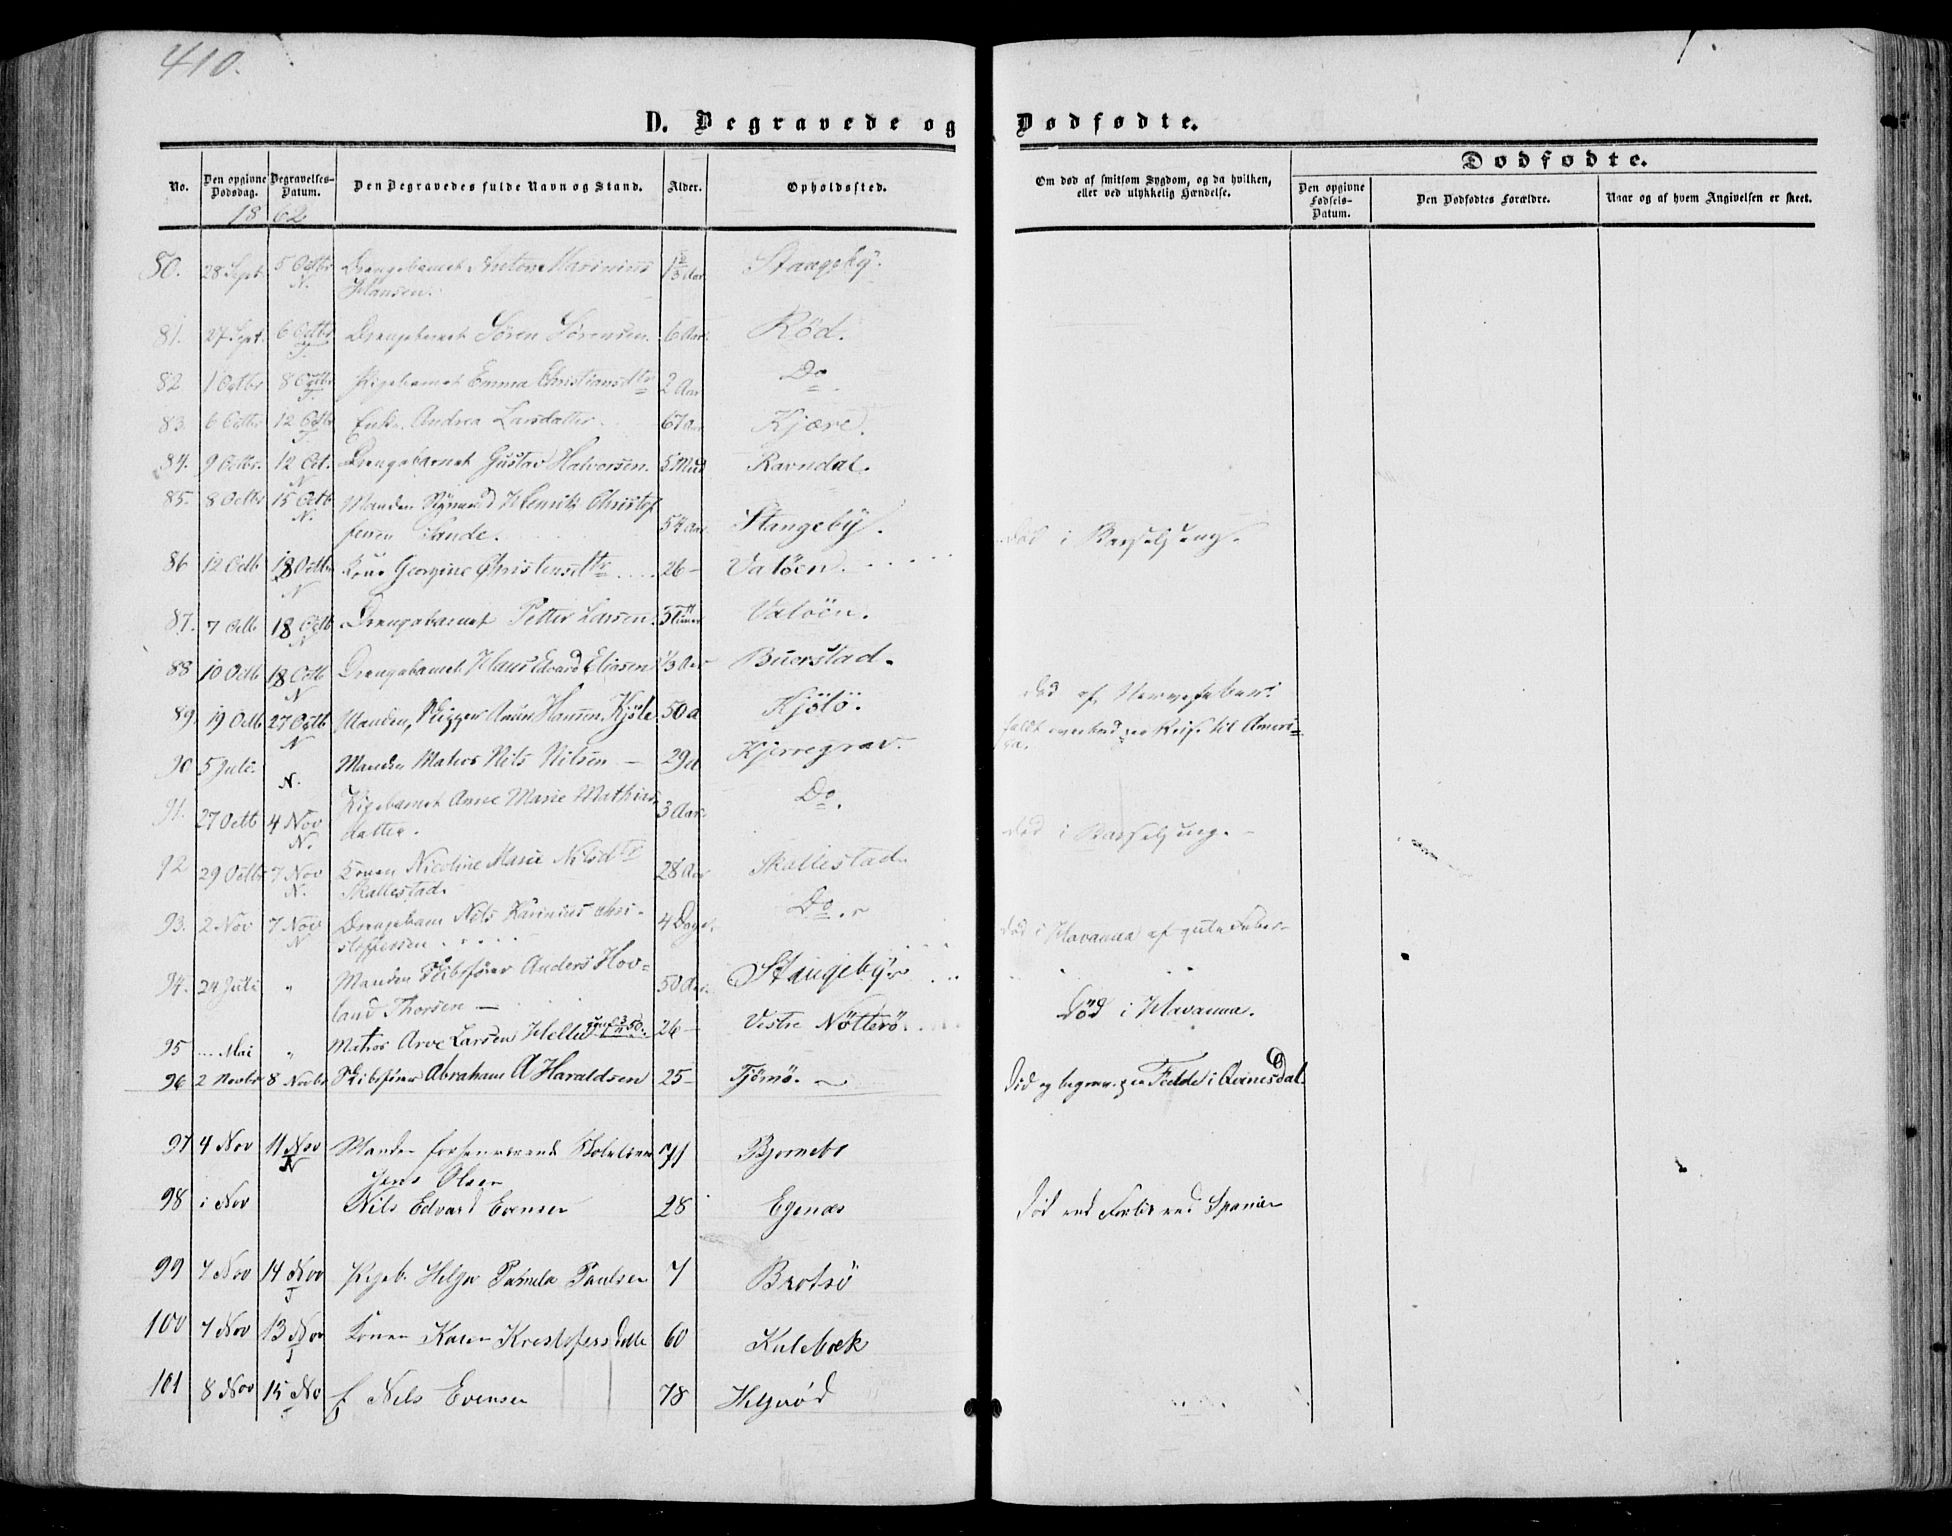 410.
D. Begravede og Dødfødte.
No.
Den opgivne Dødsdag.
Begravelses-Datum.
Den Begravedes fulde Navn og Stand.
Alder.
Opholdssted.
Om død af smitsom Sygdom, og da hvilken,
eller ved ulykkelig Hændelse.
Dødfødte.
Den opgivne Fødsels-Datum.
Den Dødfødtes Forældre.
Naar og af hvem Angivelsen er skeet.
1862
80. 28 Sept 5 Octbr N. Drengebarnet Anton Marinius 1 2/3 Aar Stangeby.
Hansen.
81. 27 Sept. 6 Octbr T. Drengebarnet Søren Sørensen. 6 Aar. Röd.
82 1 Octbr 8 Octbr T. Pigebarnet Emma Christiansdtr 2 Aar Do
83. 6 Octbr 12 Octbr T. Enke Andrea Larsdatter. 67 Aar Kjære.
84. 9 Octbr. 12 Oct. N Drengebarnet Gustav Halvorsen. 5 Mnd Ravndal.
85. 8 Octbr 15 Octb N. Manden Henrik Christof
fersen Sande. 54 Aar. Stangeby.
86 12 Octb 18 Octbr N Kone Georgine Christensdtr 26 – Valöen. død i Barselseng.
87. 7 Octb 18 Octb N Drengebarnet Petter Larsen. 5 Timer Valöen.
88 10 Octb 18 Octb N Drengebarnet Hans Edvard Eliasen 1/3 Aar Buerstad.
89. 19 Octb 27 Octb N Manden, Rigger Hansen Kjöle 50 a Kjölö. død af Nervefeber.
90 5 Juli. N. Manden Matros Nils Nilsen – 29 a Kjerregrav. faldt overbord paa Reise til Ameri=
ka.
91. 27 Octb 4 Nov N. Pigebarnet Anne Marie Mathias 3 Aar. Do.
datter.
92 29 Octbr 7 Nov N. Konen Nicoline Marie Nilsdtr 28 Aar Skallestad. død i Barselseng. –
Skallestad.
93. 2 Nov 7 Nov N Drengebarn Nils Karinius Chri-
stoffersen 4 Dage. Do.
94. 24 Juli " Manden Skibsfører Anders Hov=
land Thorsen – 50 Aar. Stangeby død i Havanna af gule Feber
95 Mai " Matros Arve Larsen Helle 26 – Vestre Nötterö. Död i Havanna.
96 2 Novbr 8 Novbr Skibsfører Abraham A Haraldsen 25 – Tjömö. Död og begrav. paa Fedde i Qvinesdal.
97 4 Nov 11 Nov N Manden forhenværende 71 Bjørnebo
Jens Olsen
98 i Nov Nils Edvard Evensen 28 Egenæs Död ved Forlis ved Spanien
99 7 Nov 14 Nov J Pigeb. Helga Pamela Paulsen 7 Brotsö
100 7 Nov 13 Nov J Konen Karen Kristofersdatte 60 Kulebæk
101 8 Nov 15 Nov F Nils Evensen 78 Helgeröd